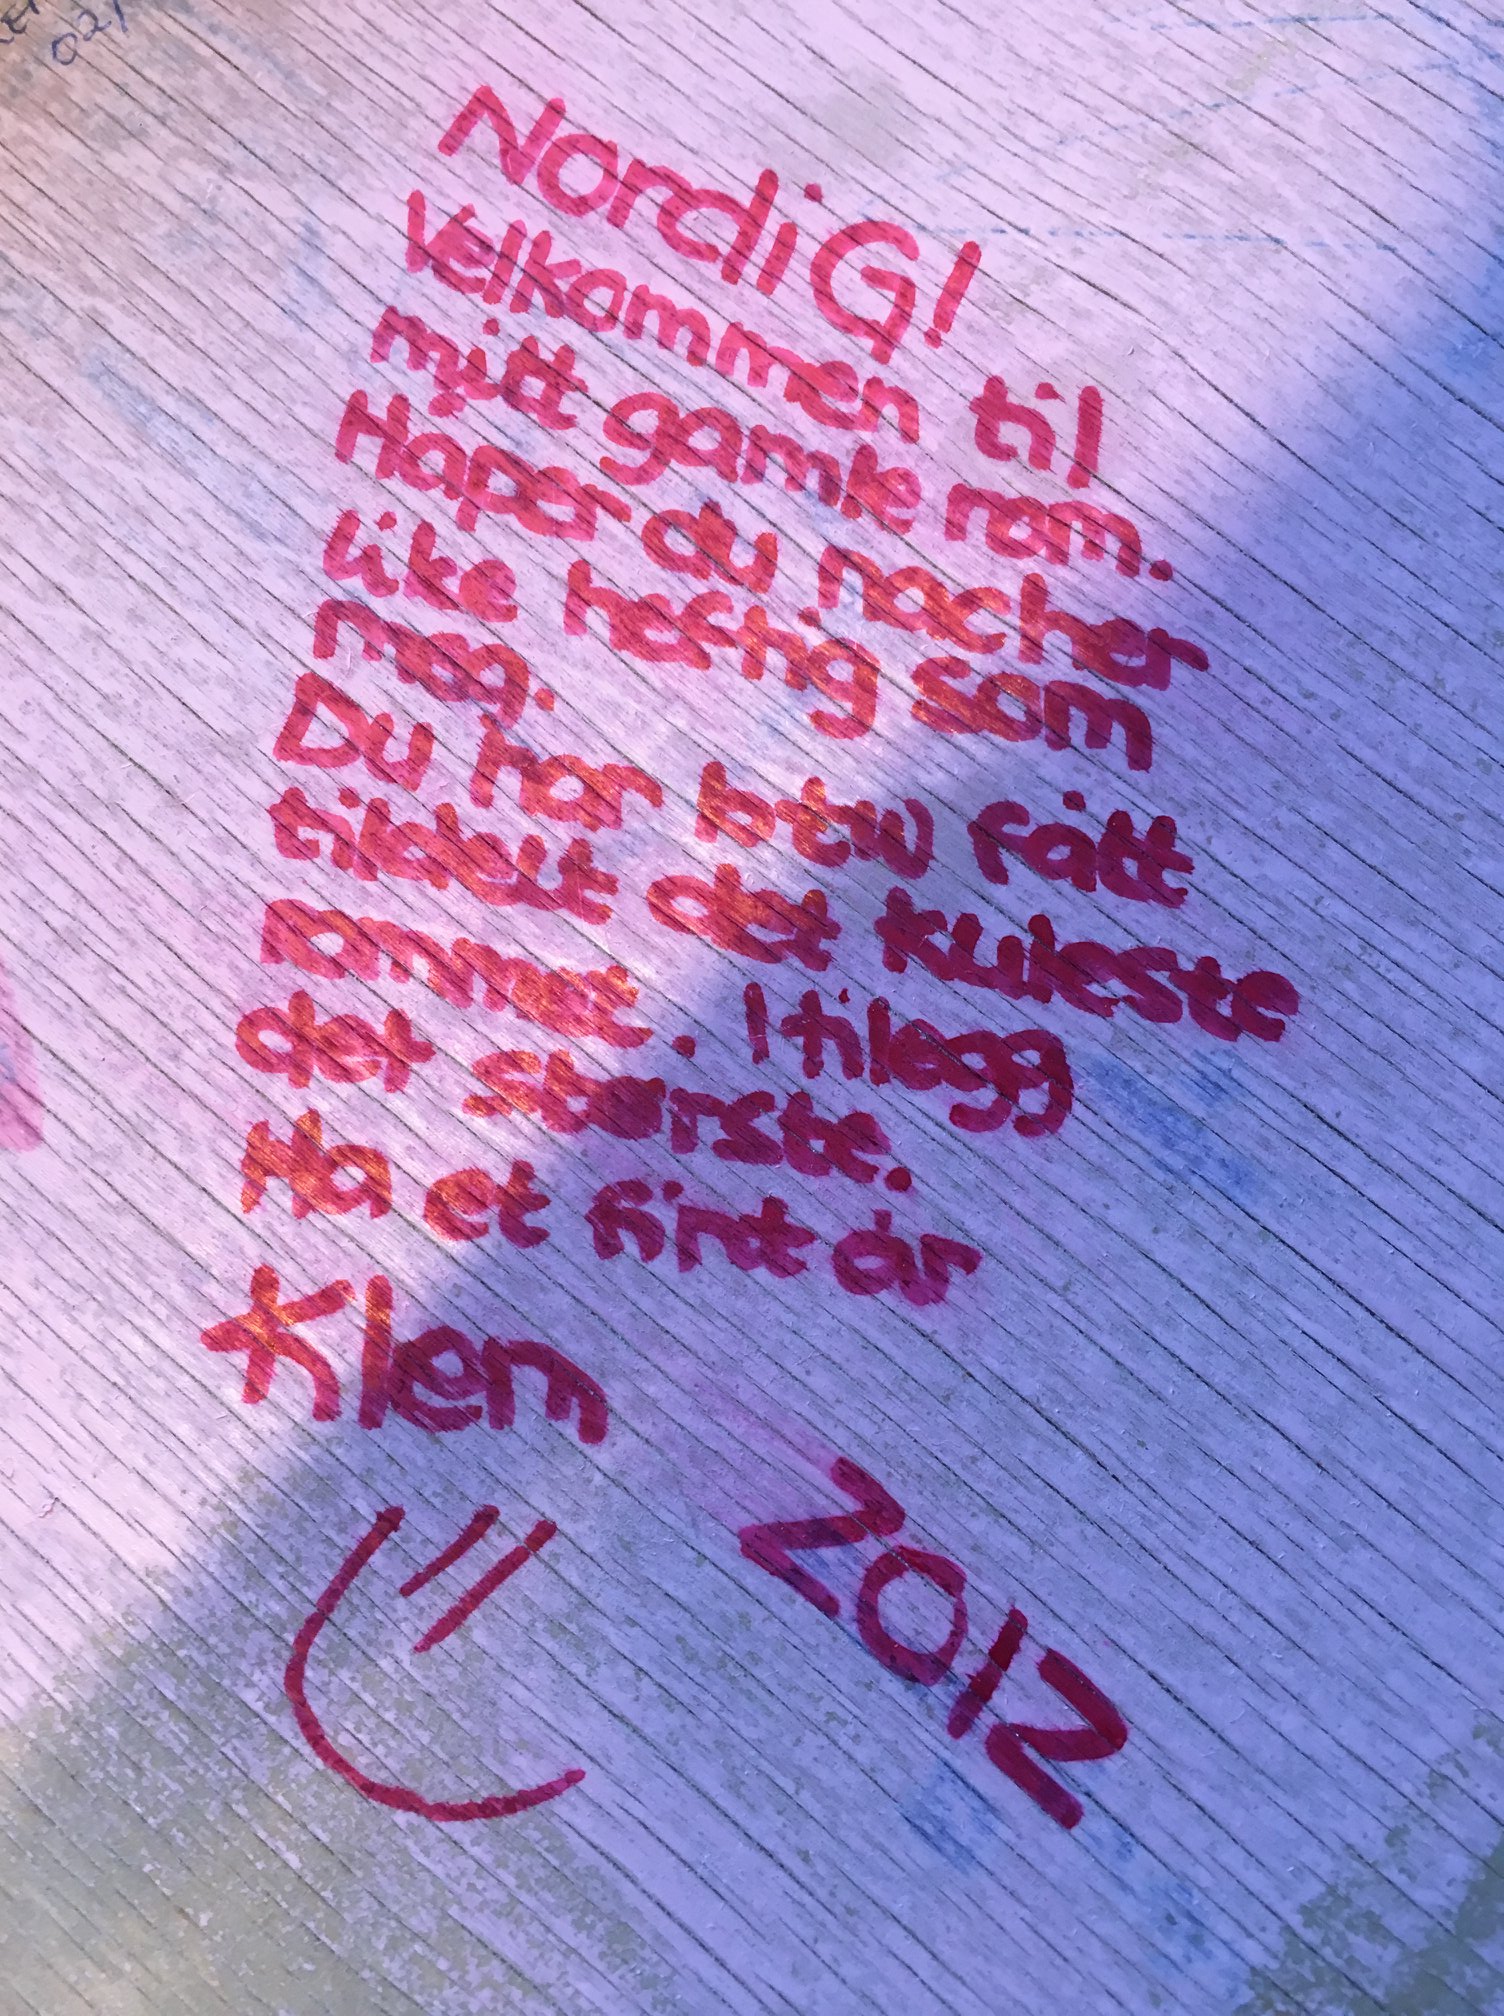 NordiG!
Velkommen til
mitt gamle rom.
Håper du nacher
like heftig som
meg.
Du har btw fått
tildelt det kuleste
rommet. I tilegg
det største.
Ha et fint år
Klem
2012